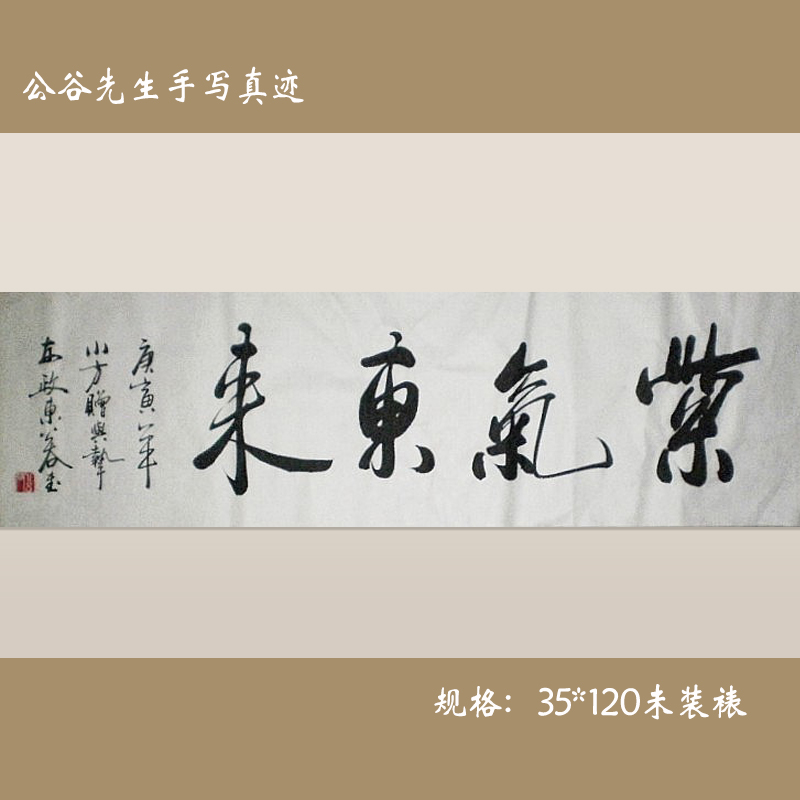 公谷先生手写真迹
紫氣東来
庚寅年
小方贈與摯
友政東公谷书
规格：35*120未装裱